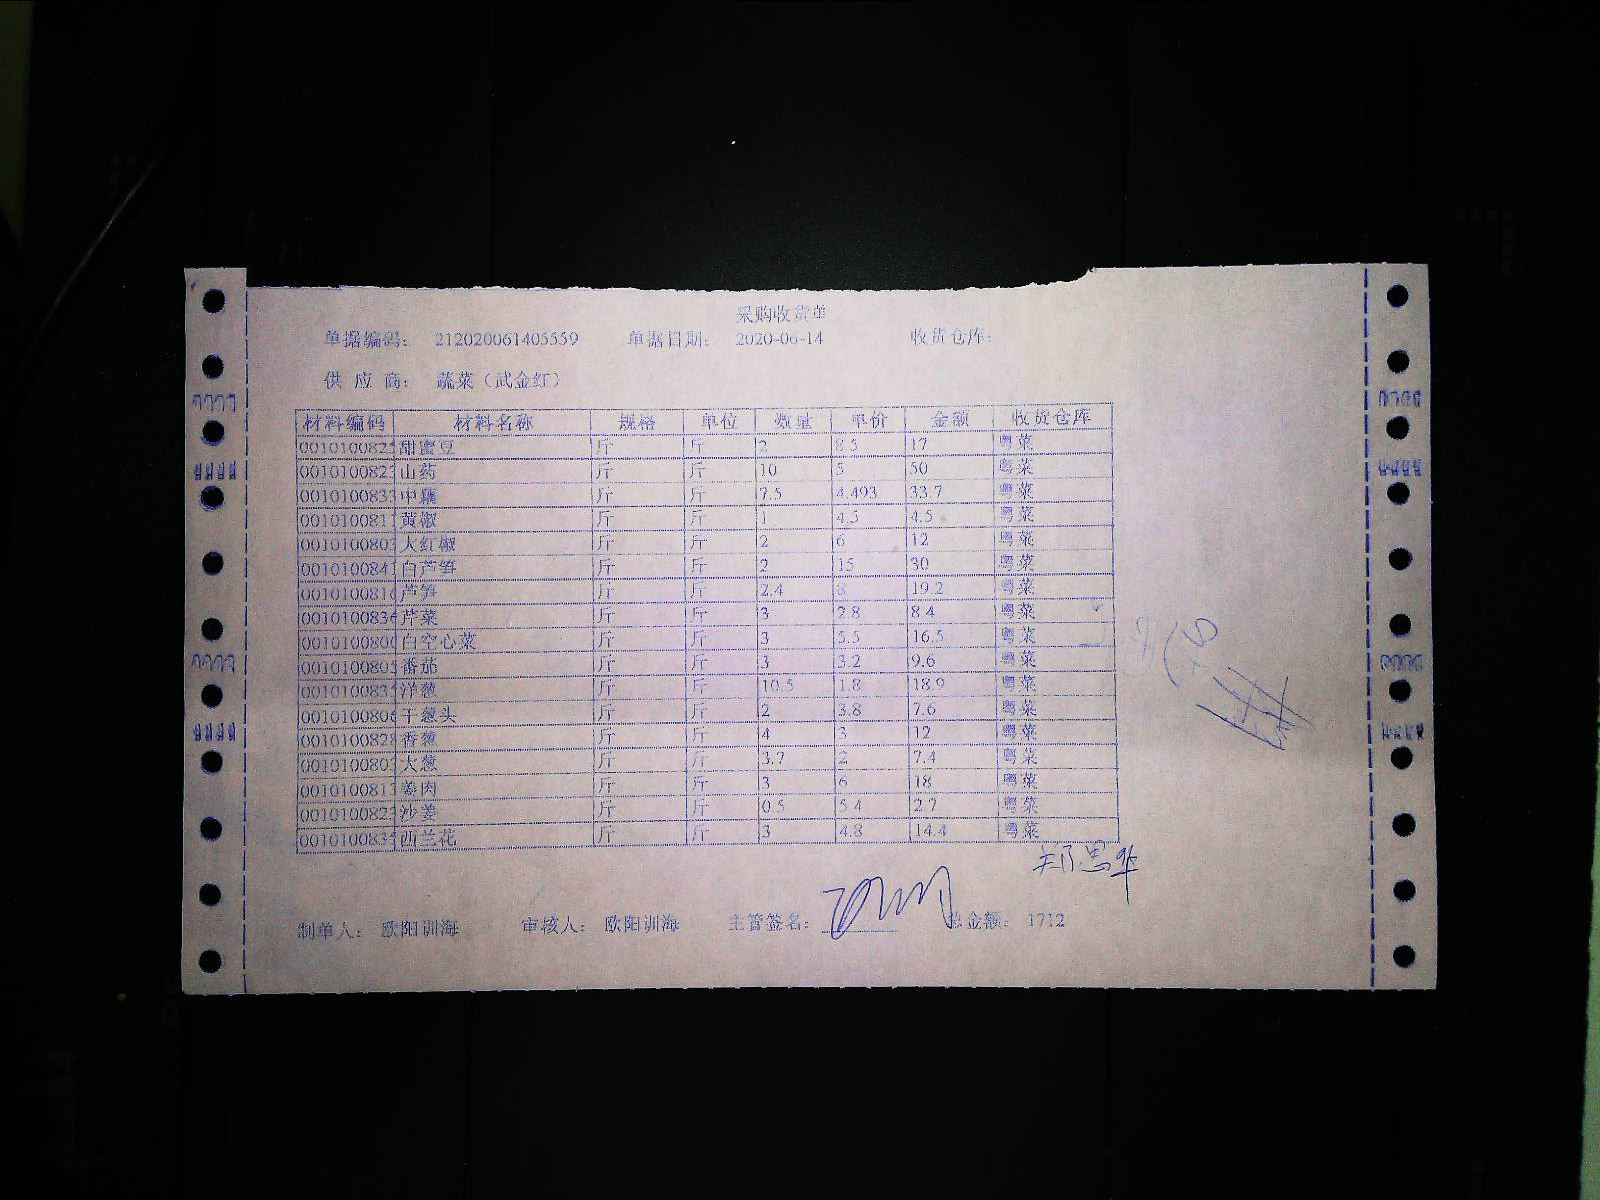 采购收货单
单据编码： 212020061405559 单据日期： 2020-06-14 收货仓库：
供 应 商： 蔬菜（武金红）
材料编码 材料名称 规格 单位 数量 单价 金额 收货仓库
001010082 甜蜜豆 斤 斤 2 8.5 17 粤菜
001010082 山药 斤 斤 10 5 50 粤菜
001010083 中藕 斤 斤 7.5 4.493 33.7 粤菜
001010081 黄椒 斤 斤 1 4.5 4.5 粤菜
001010080 大红椒 斤 斤 2 6 12 粤菜
001010084 白芦笋 斤 斤 2 15 30 粤菜
001010081 芦笋 斤 斤 2.4 8 19.2 粤菜
001010083 芹菜 斤 斤 3 2.8 8.4 粤菜
001010080 白空心菜 斤 斤 3 5.5 16.5 粤菜
001010080 番茄 斤 斤 3 3.2 9.6 粤菜
001010083 洋葱 斤 斤 10.5 1.8 18.9 粤菜
001010080 干葱头 斤 斤 2 3.8 7.6 粤菜
001010082 香葱 斤 斤 4 3 12 粤菜
001010080 大葱 斤 斤 3.7 2 7.4 粤菜
001010081 姜肉 斤 斤 3 6 18 粤菜
001010082 沙姜 斤 斤 0.5 5.4 2.7 粤菜
001010083 西兰花 斤 斤 3 4.8 14.4 粤菜
郑思华
制单人： 欧阳训海 审核人： 欧阳训海 主管签名： 总金额： 1712